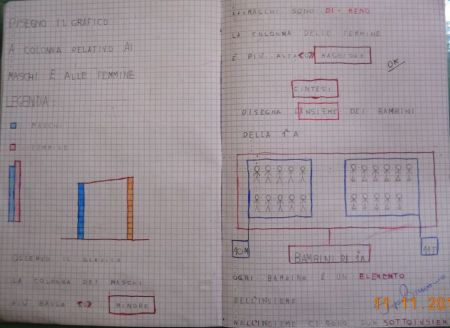 DISEGNO IL GRAFICO
A COLONNA RELATIVO AI
MASCHI E ALLE FEMMINE
LEGENDA:
MASCHI
FEMMINE
OSSERVO IL GRAFICO
LA COLONNA DEI MASCHI
PIÙ BASSA <
MINORE
I MASCHI SONO DI MENO
LA COLONNA DELLE FEMMINE
È PIÙ ALTA > MAGGIORE
OK
SINTESI
DISEGNA L'INSIEME DEI BAMBINI
DELLA 1ª A
10 M
11 F
BAMBINI DI 1ª A
OGNI BAMBINO È UN ELEMENTO
DELL'INSIEME
NELL'INSIEME CI SONO DUE SOTTOINSIEM
11.11.20